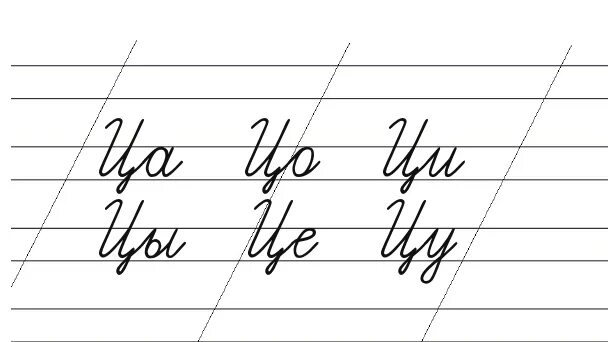 Ца Цо Ци
Цы Це Цу